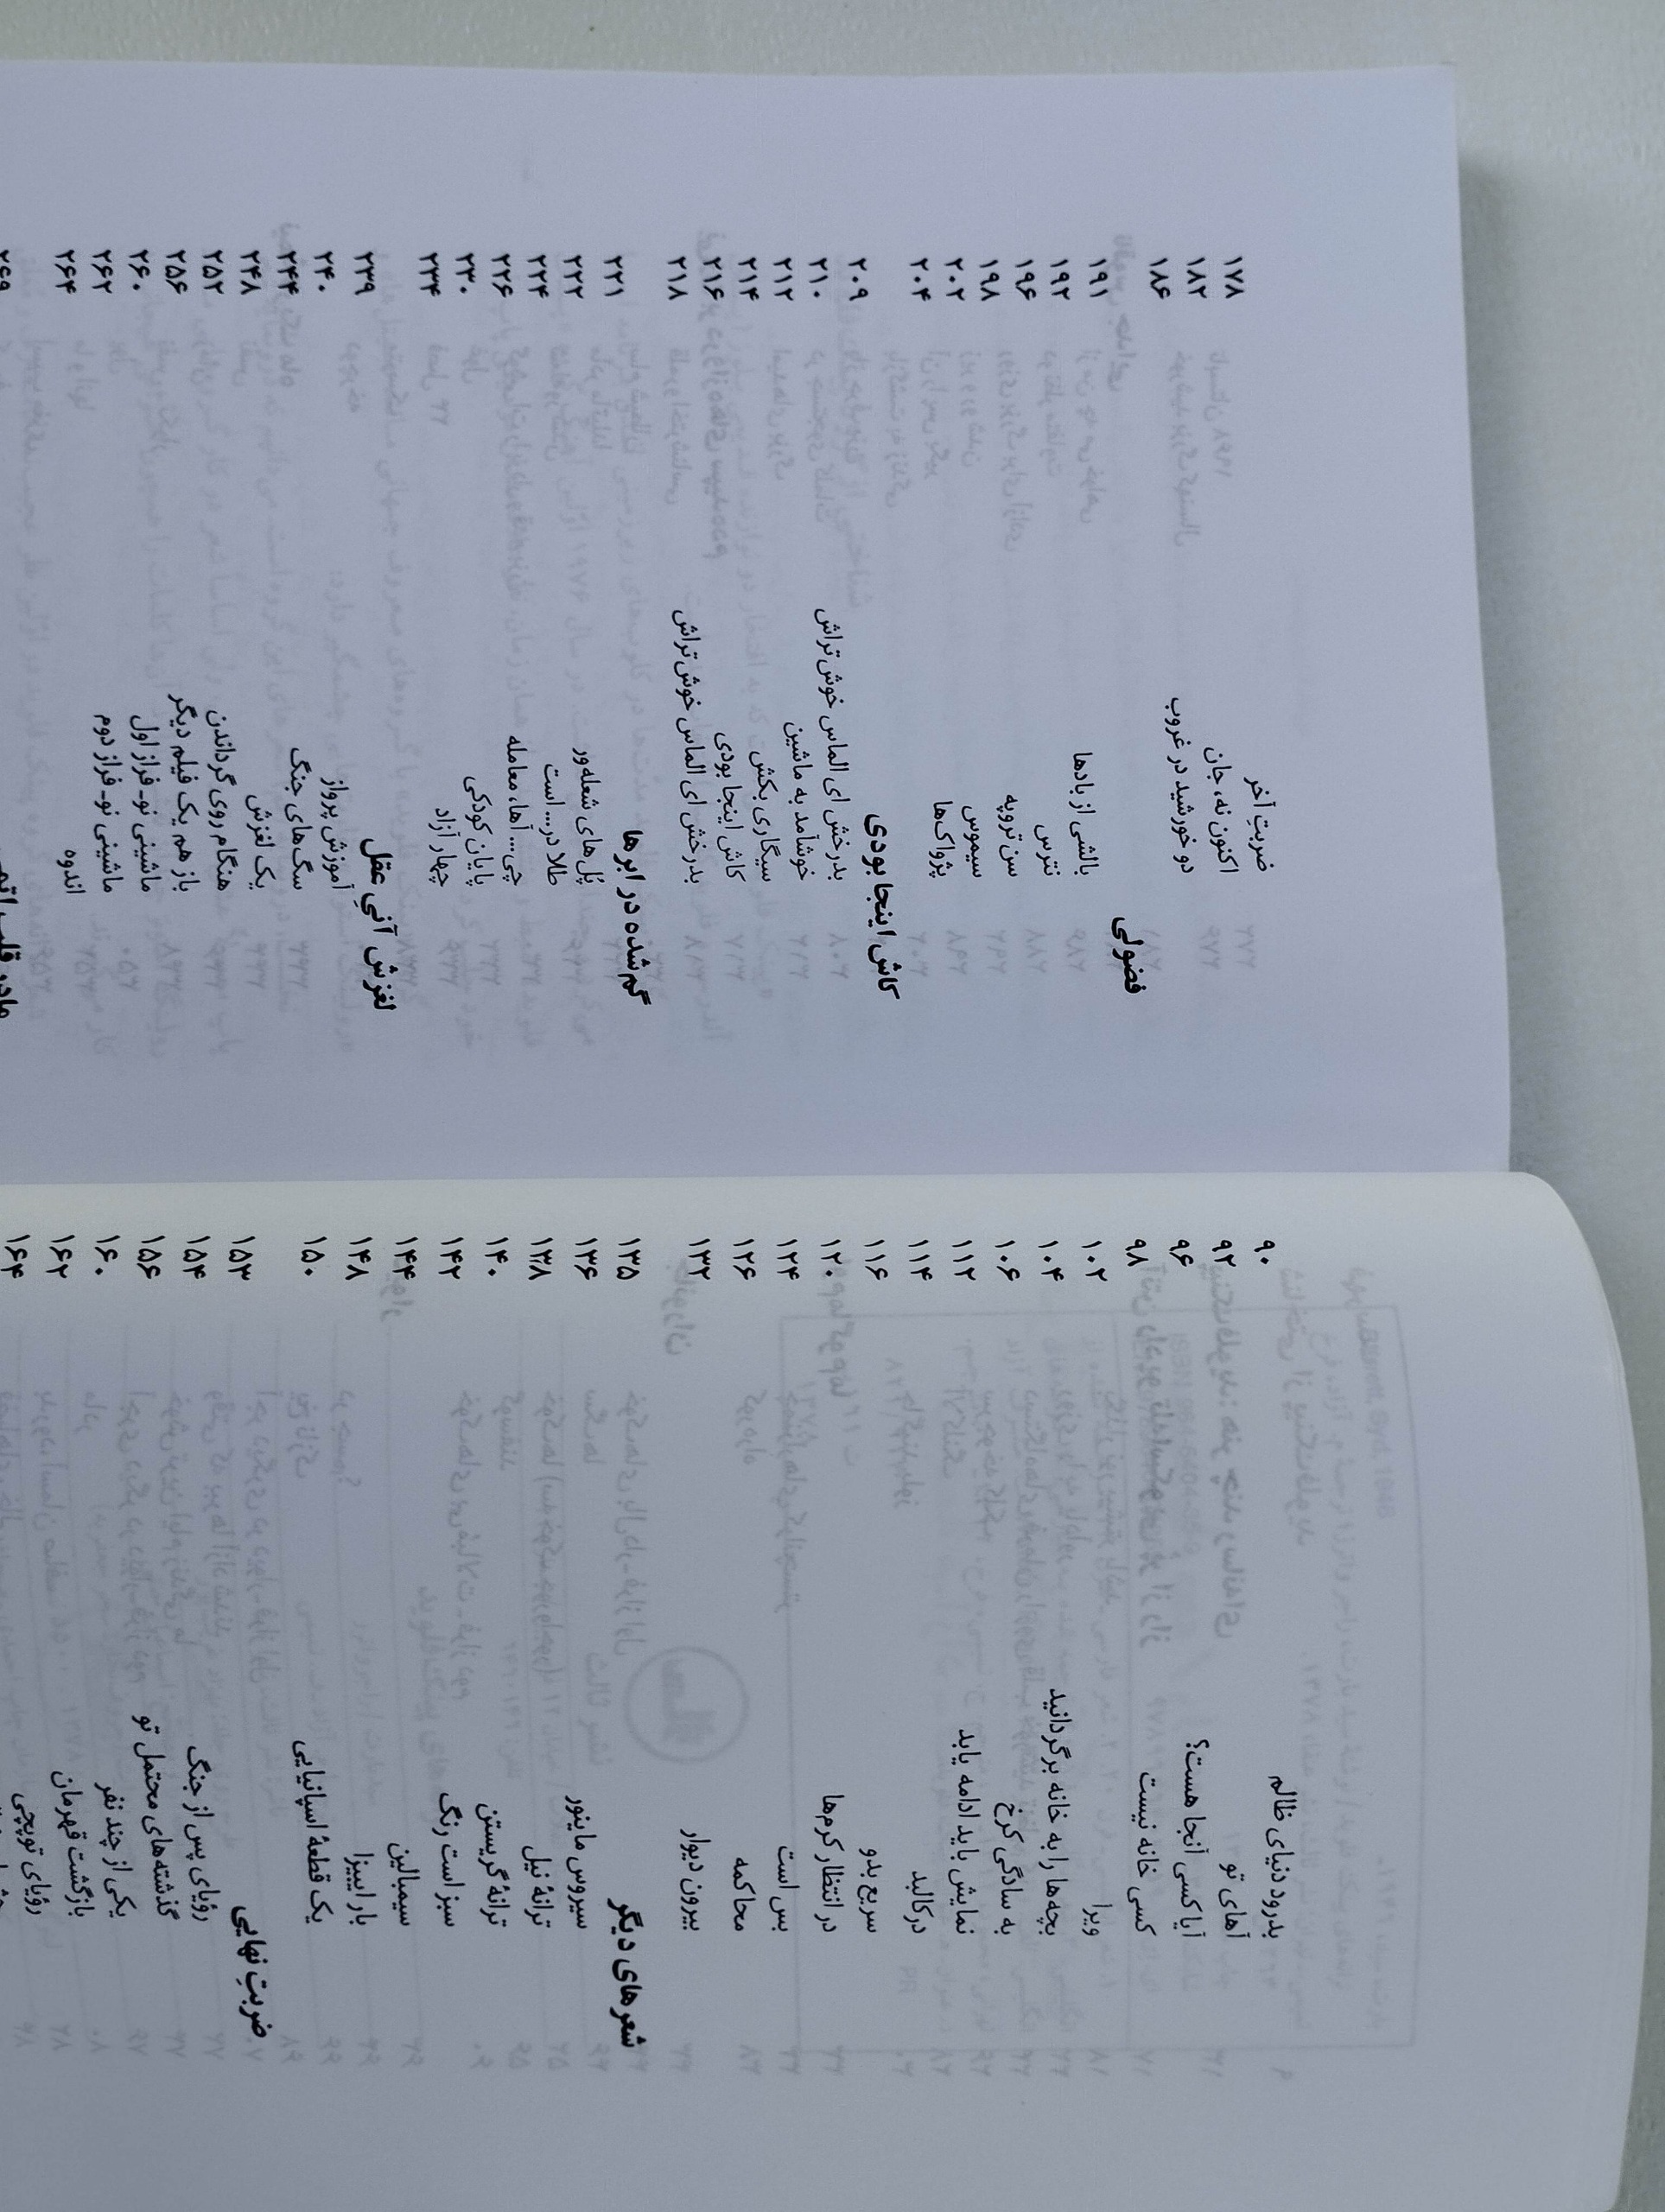 بدرود دنیای ظالم ۹۰
آهای تو ۹۲
آیا کسی آنجا هست؟ ۹۶
کسی خانه نیست ۹۸
ویرا ۱۰۲
بچه‌ها را به خانه برگردانید ۱۰۴
به سادگی کرخ ۱۰۶
نمایش باید ادامه یابد ۱۱۲
در کالبد ۱۱۴
سریع بدو ۱۱۶
در انتظار کرم‌ها ۱۲۰
بس است ۱۲۴
محاکمه ۱۲۶
بیرون دیوار ۱۳۲
شعرهای دیگر ۱۳۵
سیروس ماینور ۱۳۶
ترانهٔ نیل ۱۳۸
ترانهٔ گریستن ۱۴۰
سبز است رنگ ۱۴۲
سیمبالین ۱۴۴
بار اییبزا ۱۴۸
یک قطعهٔ اسپانیایی ۱۵۰
ضربتِ نهایی ۱۵۳
رؤیای پس از جنگ ۱۵۴
گذشته‌های محتمل تو ۱۵۶
یکی از چند نفر ۱۶۰
بازگشت قهرمان ۱۶۲
رؤیای توپچی ۱۶۴
ضربتِ آخر ۱۷۸
اکنون نه، جان ۱۸۲
دو خورشید در غروب ۱۸۶
فضولی ۱۹۱
بالشی از بادها ۱۹۲
نترس ۱۹۶
سن تروپه ۱۹۸
سیموس ۲۰۲
پژواک‌ها ۲۰۴
کاش اینجا بودی ۲۰۹
بدرخش ای الماس خوش تراش ۲۱۰
خوشامد به ماشین ۲۱۲
سیگاری بکش ۲۱۴
کاش اینجا بودی ۲۱۶
بدرخش ای الماس خوش تراش ۲۱۸
گم‌شده در ابرها ۲۲۱
پُل‌های شعله‌ور ۲۲۲
طلا در... است ۲۲۴
چی... آها، معامله ۲۲۶
پایان کودکی ۲۳۰
چهار آزاد ۲۳۴
لغزش آنیِ عقل ۲۳۹
آموزش پرواز ۲۴۰
سگ‌های جنگ ۲۴۴
یک لغزش ۲۴۸
هنگام روی گرداندن ۲۵۲
باز هم یک فیلم دیگر ۲۵۶
ماشینی نو- فراز اول ۲۶۰
ماشینی نو- فراز دوم ۲۶۲
اندوه ۲۶۴